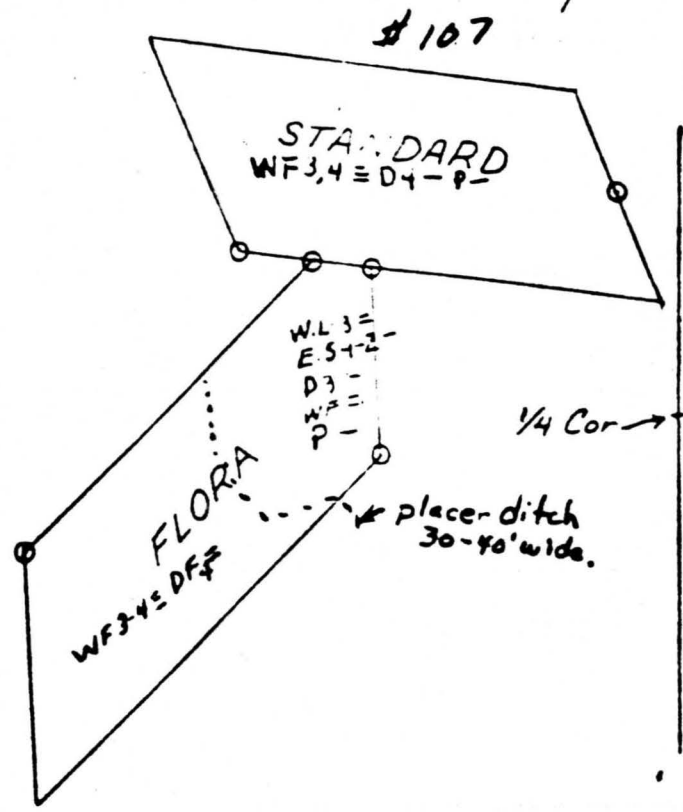 # 107
STANDARD
WF3,4 = D4 - P -
W.L 3 =
E.S 4-2 -
D3 -
WF =
P -
1/4 Cor →
FLORA
WF3-4 = DF
placer ditch
30-40' wide.